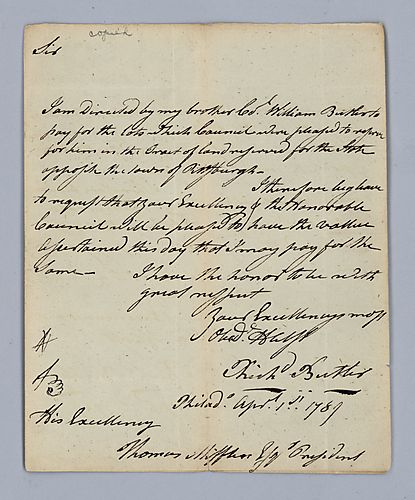 copied
Sir
I am Directed by my brother Col. William Butler to
pay for the lots which Council were pleased to reserve
for him in the tract of land reserved for the State
opposite the town of Pittsburgh—
I therefore beg leave
to request that your Excellency & the Honorable
Council will be pleas'd to have the value
ascertained this day that I may pay for the
same—
I have the honor to be with
great respect
Your Excellencys most
Obed.t H
Rich.d Butler
Philad.a Apr.l 1st 1789
His Excellency
Thomas Mifflin Esq.r President